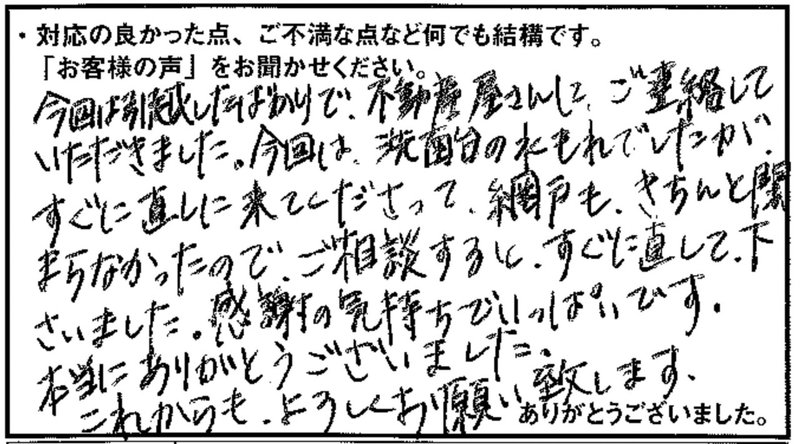 ・対応の良かった点、ご不満な点など何でも結構です。
「お客様の声」をお聞かせください。
今回は引越したばかりで、不動産屋さんに、ご連絡して
いただきました。今回は、洗面台の水もれでしたが、
すぐに直しに来てくださって、網戸も、きちんと閉
まらなかったので、ご相談すると、すぐに直して、下
さいました。感謝の気持ちでいっぱいです。
本当にありがとうございました。
これからも、よろしくお願い致します、
ありがとうございました。